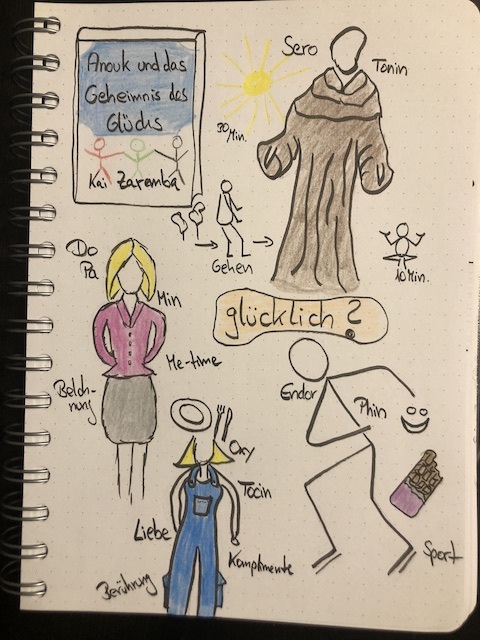 Anouk und das
Geheimnis des
Glücks
Kai Zaremba
Sero
Tonin
30 Min.
Gehen
10 Min.
Do
Pa
Min
glücklich?
Me-time
Beloh-
nung
Endor
Phin
Oxy
Tocin
Liebe
Komplimente
Berührung
Sport